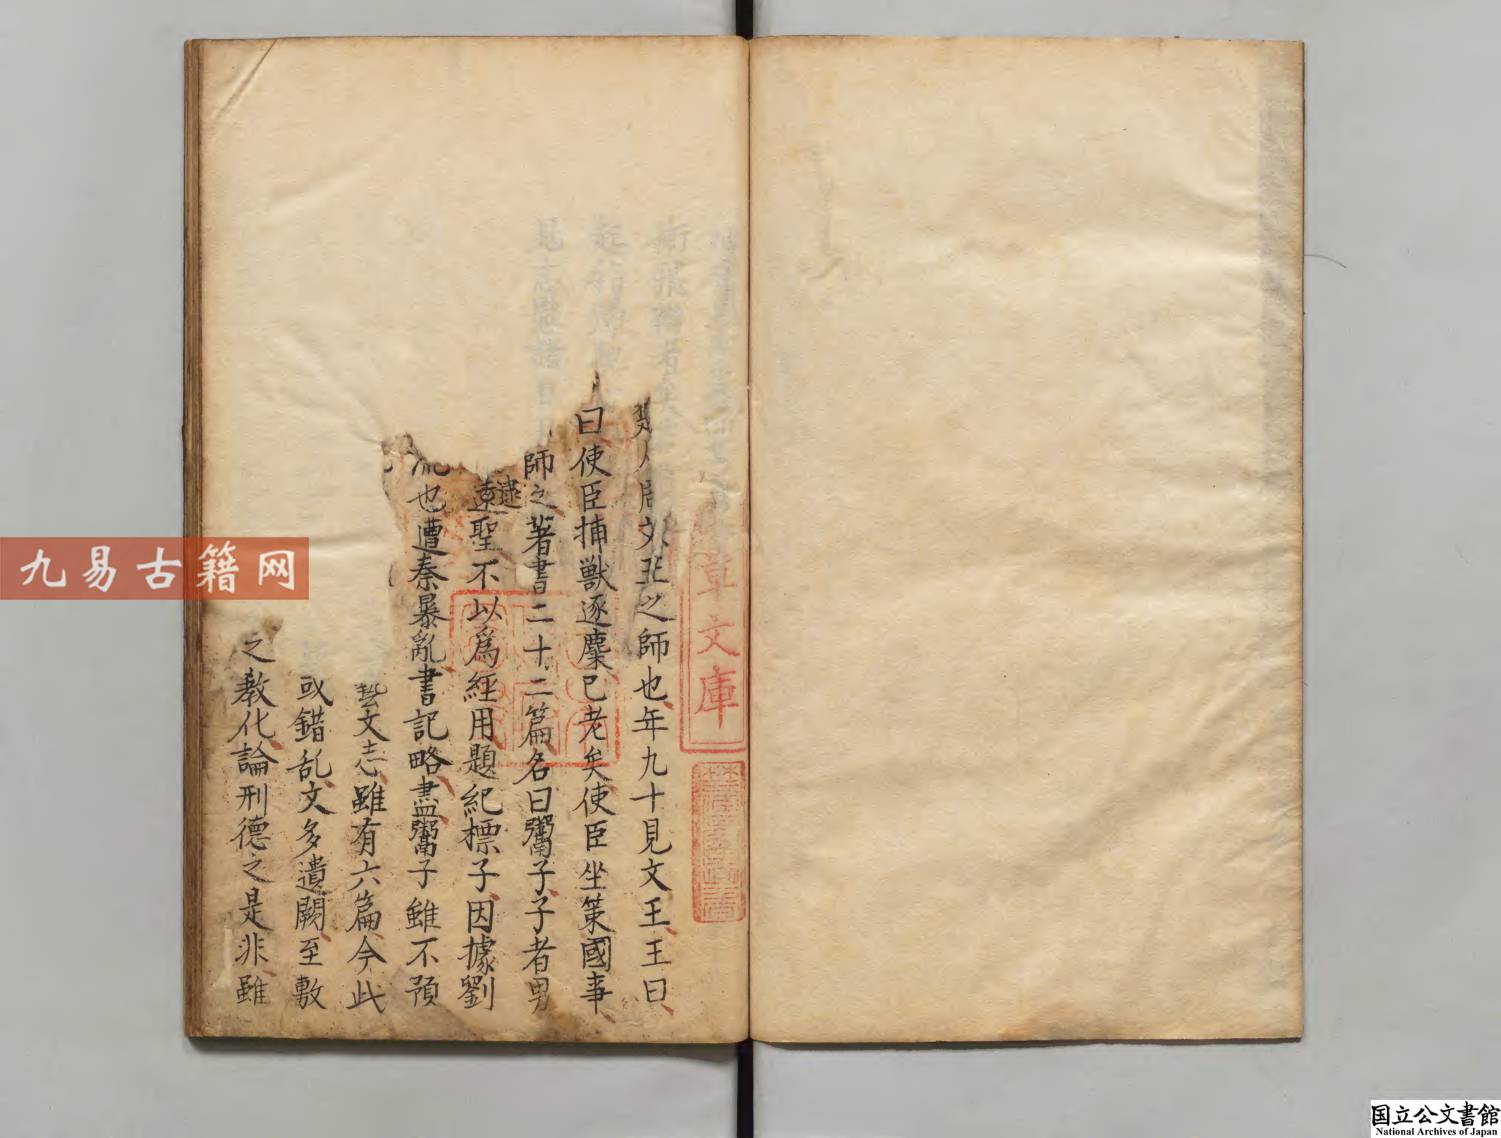 周文王之師也年九十見文王王曰
曰使臣捕獣逐麋已老矣使臣坐策國事
師之著書二十二篇名曰鬻子子者男
逮
遠聖不以爲經用題紀標子因據劉
流也遭秦暴亂書記略盡鬻子雖不預
藝文志雖有六篇今此
或錯乱文多遺闕至敷
之教化論刑德之是非雖
章文庫
九易古籍网
国立公文書館
National Archives of Japan